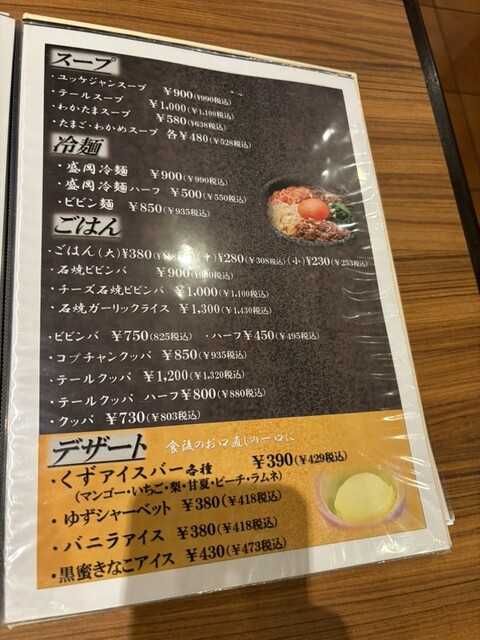 スープ
・ユッケジャンスープ ￥900(￥990税込)
・テールスープ ￥1,000(￥1,100税込)
・わかたまスープ ￥580(￥638税込)
・たまご・わかめスープ 各￥480(￥528税込)
冷麺
・盛岡冷麺 ￥900(￥990税込)
・盛岡冷麺ハーフ ￥500(￥550税込)
・ビビン麺 ￥850(￥935税込)
ごはん
・ごはん(大)￥380 (中)￥280(￥308税込) (小)￥230(￥253税込)
・石焼ビビンバ ￥900
・チーズ石焼ビビンバ ￥1,000(￥1,100税込)
・石焼ガーリックライス ￥1,300(￥1,430税込)
・ビビンバ ￥750(825税込) ・ハーフ￥450(￥495税込)
・コプチャンクッパ ￥850(￥935税込)
・テールクッパ ￥1,200(￥1,320税込)
・テールクッパ ハーフ￥800(￥880税込)
・クッパ ￥730(￥803税込)
デザート 食後のお口直しの一口に
・くずアイスバー各種 ￥390(￥429税込)
(マンゴー・いちご・梨・甘夏・ピーチ・ラムネ)
・ゆずシャーベット ￥380(￥418税込)
・バニラアイス ￥380(￥418税込)
・黒蜜きなこアイス ￥430(￥473税込)